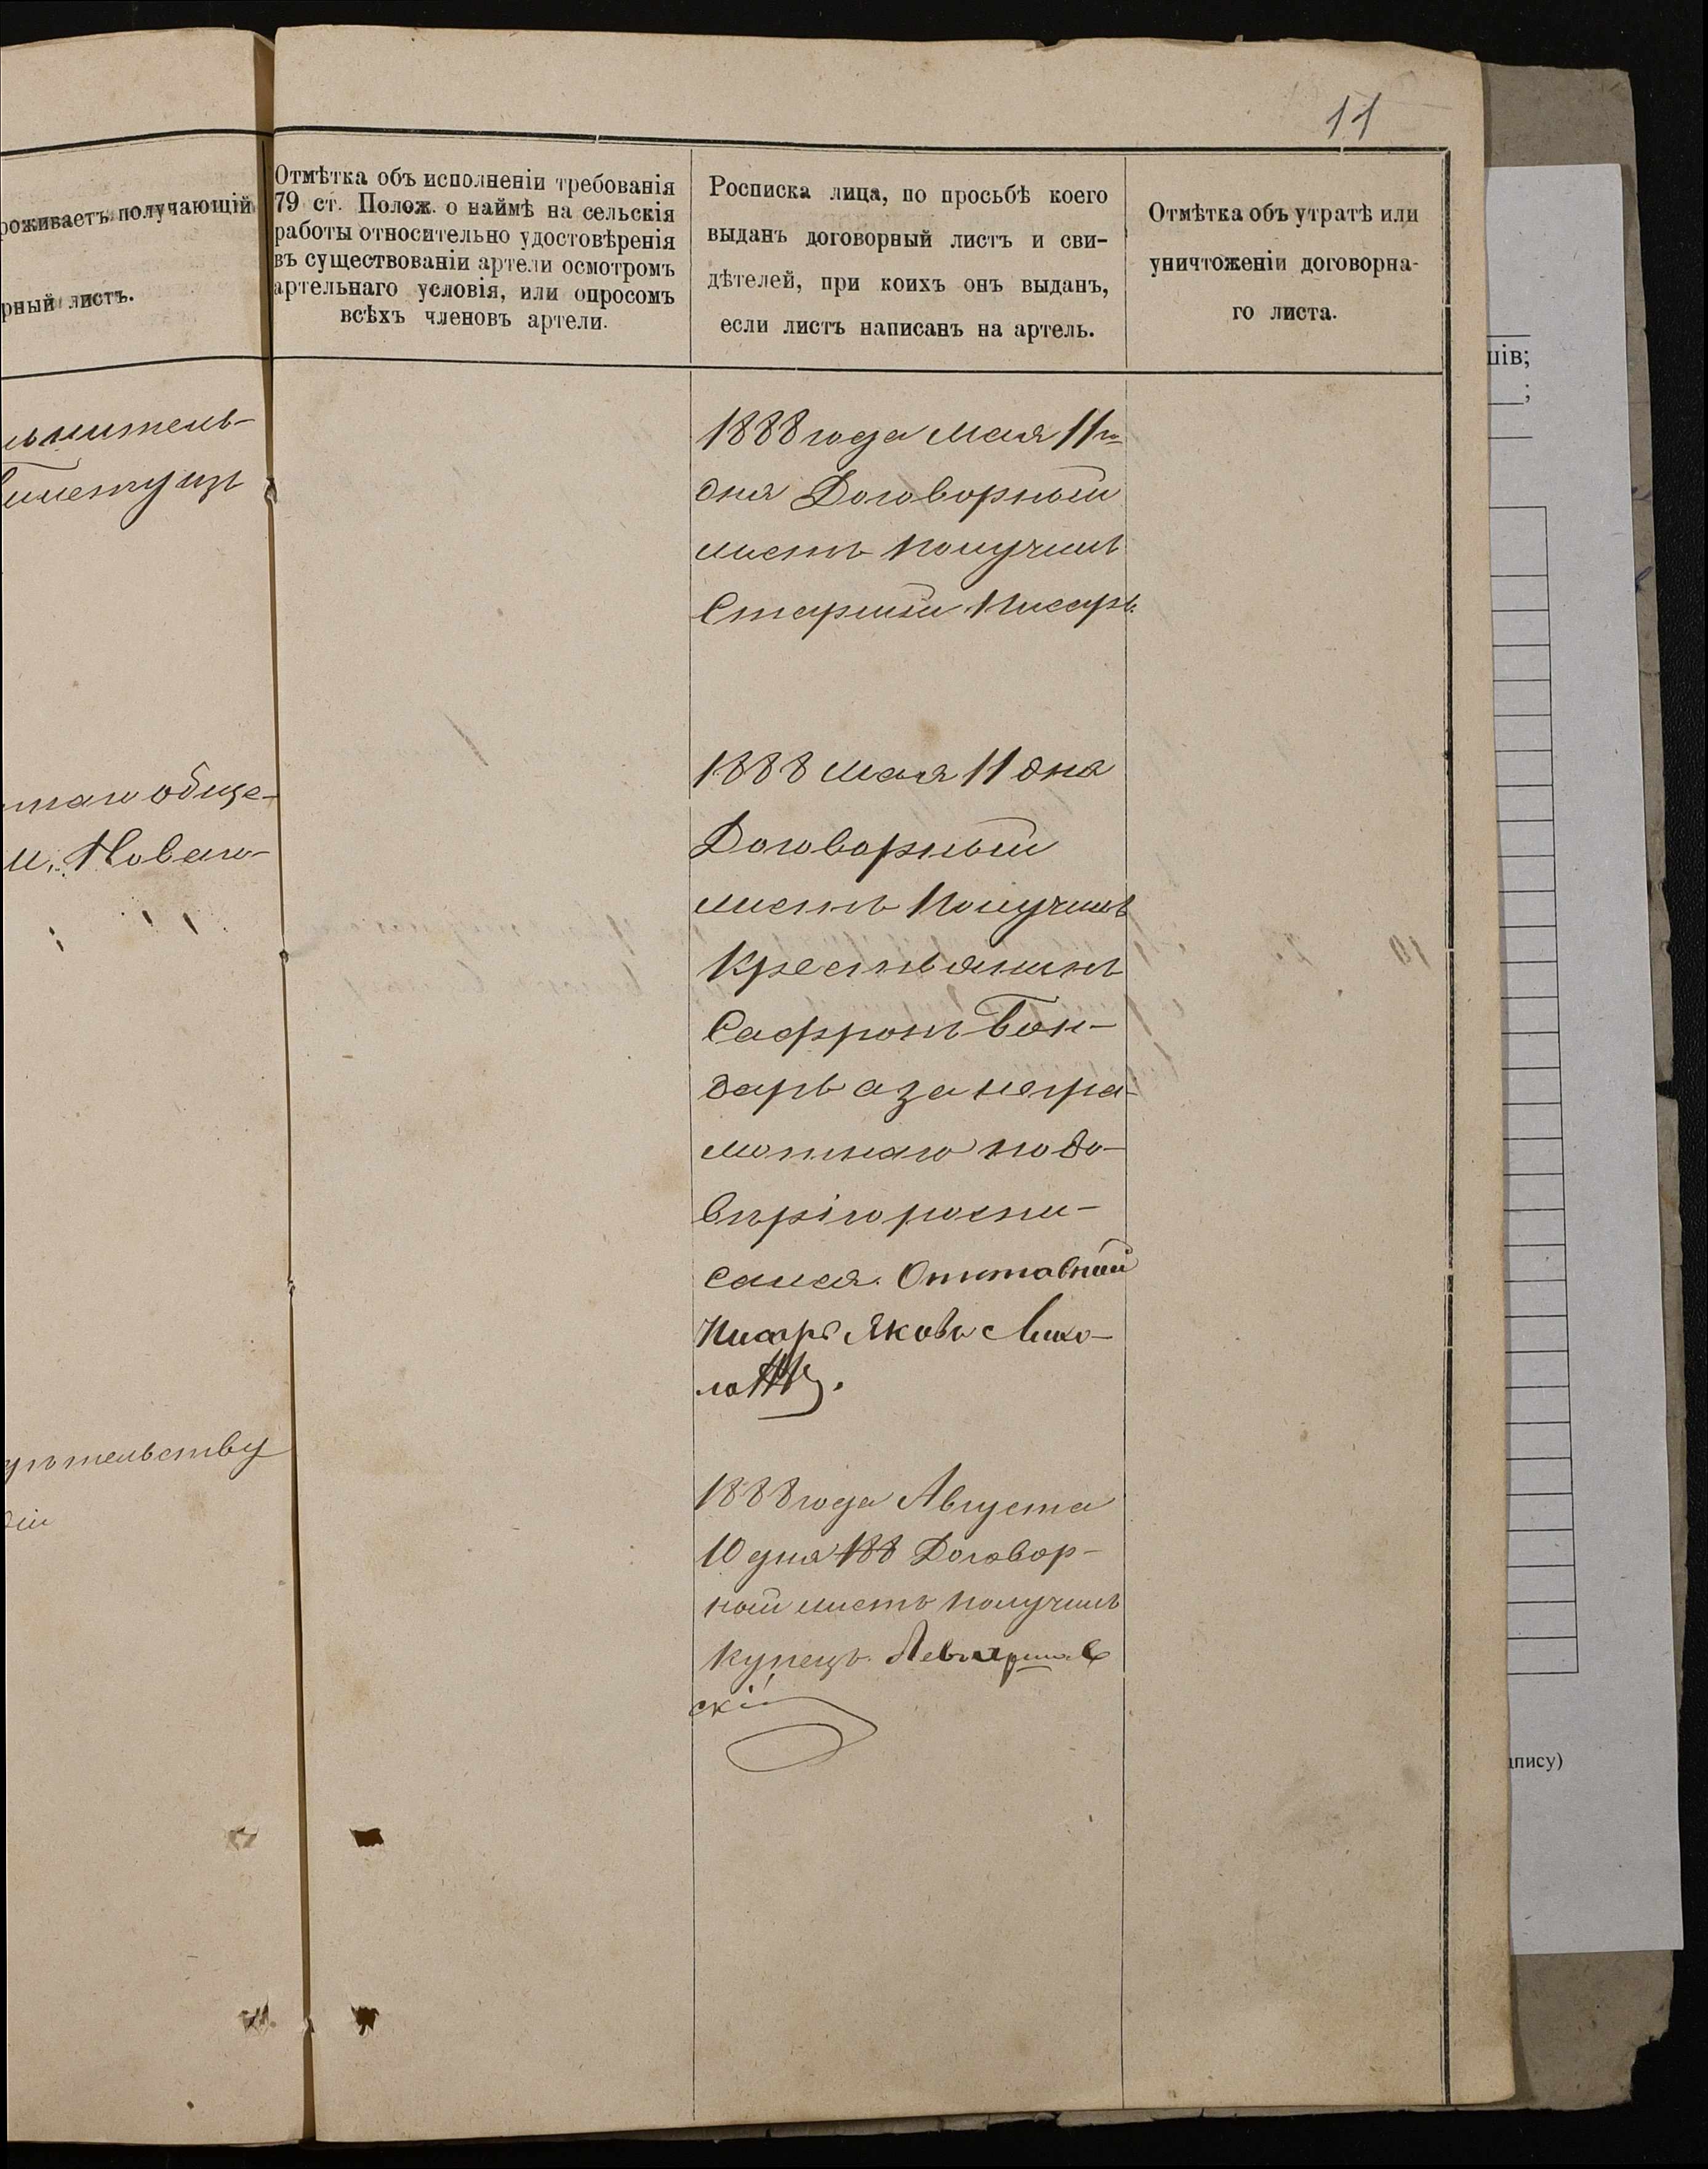 11
роживаетъ получающій
рный листъ.
Отмѣтка объ исполненіи требованія
79 ст. Полож. о наймѣ на сельскія
работы относительно удостовѣренія
въ существованіи артели осмотромъ
артельнаго условія, или опросомъ
всѣхъ членовъ артели.
Росписка лица, по просьбѣ коего
выданъ договорный листъ и сви-
дѣтелей, при коихъ онъ выданъ,
если листъ написанъ на артель.
Отмѣтка объ утратѣ или
уничтоженіи договорна-
го листа.
обще-
Новаго-
тельству
1888 года мая 11го
дня Договорный
листъ получилъ
Старший Писарь
1888 мая 11 дня
Договорный
листъ получилъ
крестьянинъ
Саффронъ Бон-
дарь а за негра-
мотнаго по до-
вѣрію роспи-
сался.
Писарь Яковъ
1888 года Августа
10 дня 188 Договор-
ный листъ получилъ
купецъ
скій
шів;
;
пису)